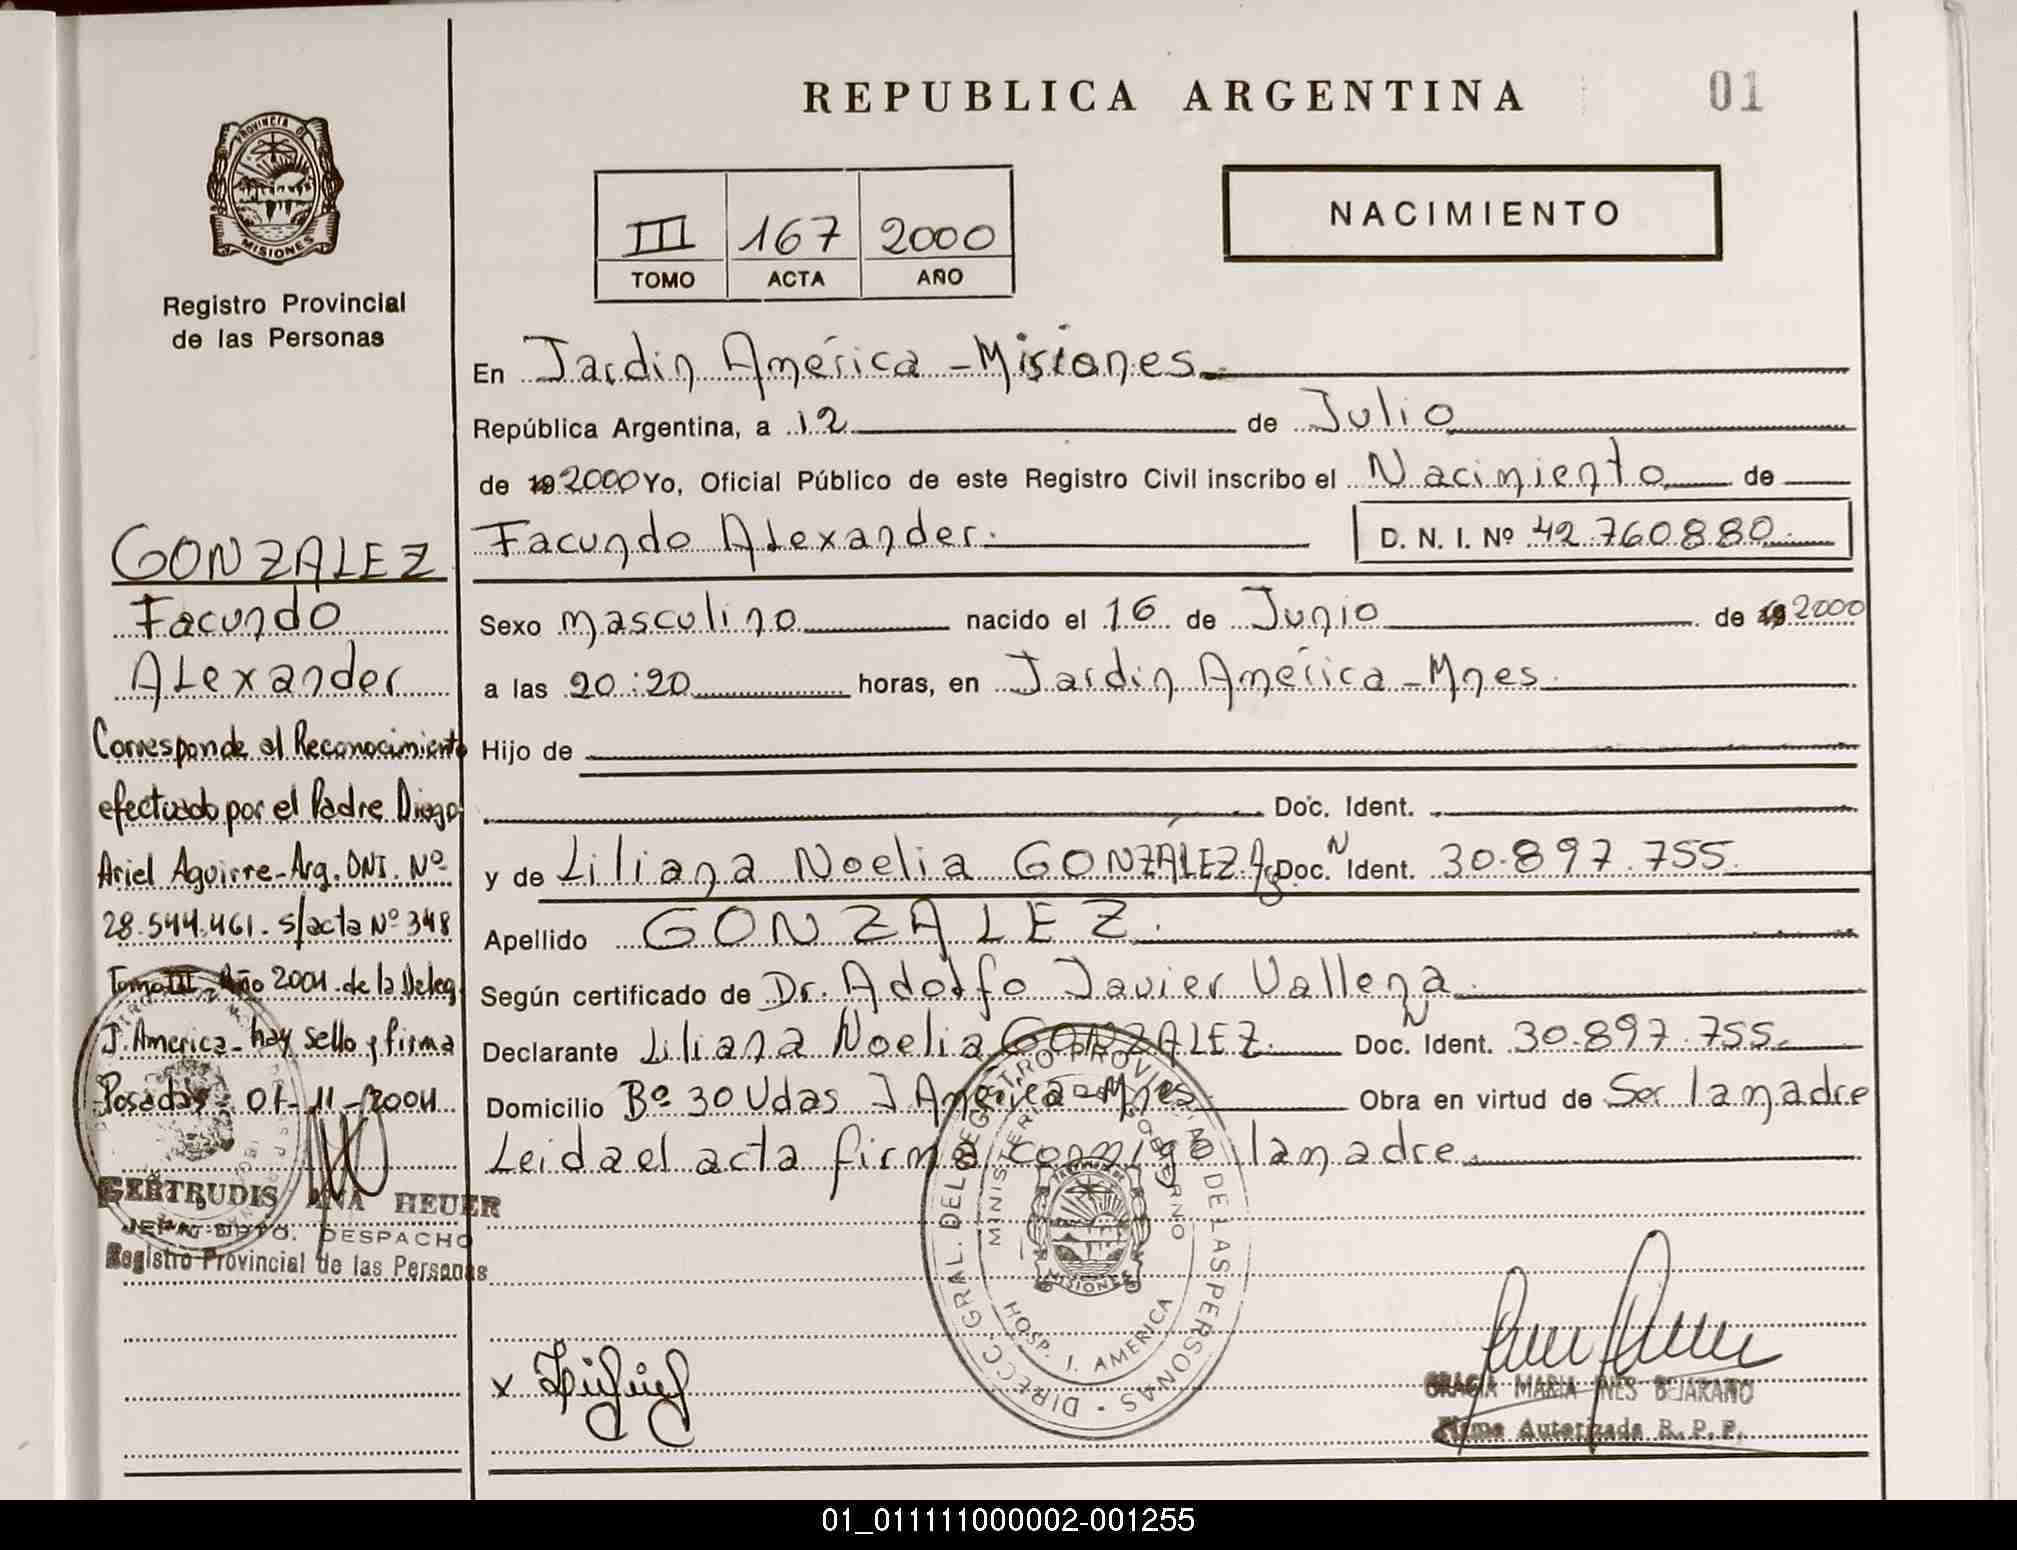 REPUBLICA ARGENTINA
01
PROVINCIA DE
MISIONES
Registro Provincial
de las Personas
III 167 2000
TOMO ACTA AÑO
NACIMIENTO
En Jardin América - Misiones
República Argentina, a 12 de Julio
de 19 2000 Yo, Oficial Público de este Registro Civil inscribo el Nacimiento de
Facundo Alexander. D. N. I. Nº 42.760.880
Sexo masculino nacido el 16 de Junio de 19 2000
a las 20:20 horas, en Jardin América - Mnes.
Hijo de
Doc. Ident.
y de Liliana Noelia GONZÁLEZ Arg Doc. N Ident. 30.897.755
Apellido GONZALEZ.
Según certificado de Dr. Adolfo Javier Vallena
Declarante Liliana Noelia GONZALEZ. Doc. N Ident. 30.897.755
Domicilio Bº 30 Vdas J América - Mnes Obra en virtud de Ser la madre
Leida el acta firma conmigo la madre.
GONZALEZ
Facundo
Alexander
Corresponde al Reconocimiento
efectuado por el Padre Diego
Ariel Aguirre - Arg. DNI. Nº
28.544.461. s/acta Nº 348
Tomo III - Año 2004 de la Deleg.
J. America - hay sello y firma
Posadas 01-11-2004
GERTRUDIS ANA HEUER
JEFA DPTO. DESPACHO
Registro Provincial de las Personas
DIRECC. GRAL. DEL REGISTRO PROVINCIAL DE LAS PERSONAS
MINISTERIO GOBIERNO
MISIONES
HOSP. J. AMERICA
x
GRACIA MARIA INES BEJARANO
Firma Autorizada R. P. P.
01_011111000002-001255